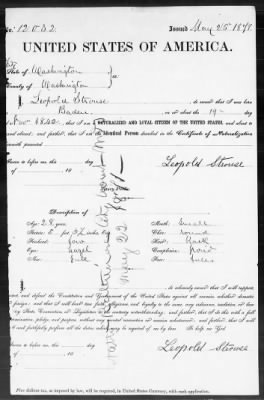 No. 12032 Issued May 25 1871
UNITED STATES OF AMERICA.
State of Washington
County of Washington
I, Leopold Strouse, do swear that I was born
Baden, on or about the 19 day
1842, that I am a NATURALIZED AND LOYAL CITIZEN OF THE UNITED STATES, and about
and that I am the Identical Person described in the Certificate of Naturalization
herewith presented.
Sworn to before me, this day
of 18 .
Leopold Strouse
Description of
Age: 28 years Mouth: small
Stature: 5 feet 5 1/2 inches Chin: round
Forehead: low Hair: dark
Eyes: hazel Complexion: fair
Nose: full Face: full
I, do solemnly swear that I will support,
protect, and defend the Constitution and Government of the United States against all enemies, whether domestic
or foreign; and that I will bear true faith, allegiance, and loyalty to the same, any ordinance, resolution, or law
of any State, Convention, or Legislature to the contrary notwithstanding; and further, that I do this with a full
determination, pledge, and purpose, without any mental reservation or evasion whatsoever; and further, that I will
well and faithfully perform all the duties which may be required of me by law. So help me God.
Sworn to before me, this day
of 18 .
Leopold Strouse
May 22
Five dollars tax, as imposed by law, will be required, in United States Currency, with each application.